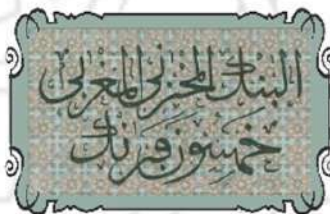 البنك المخزني المغربي
خمسون فرنك